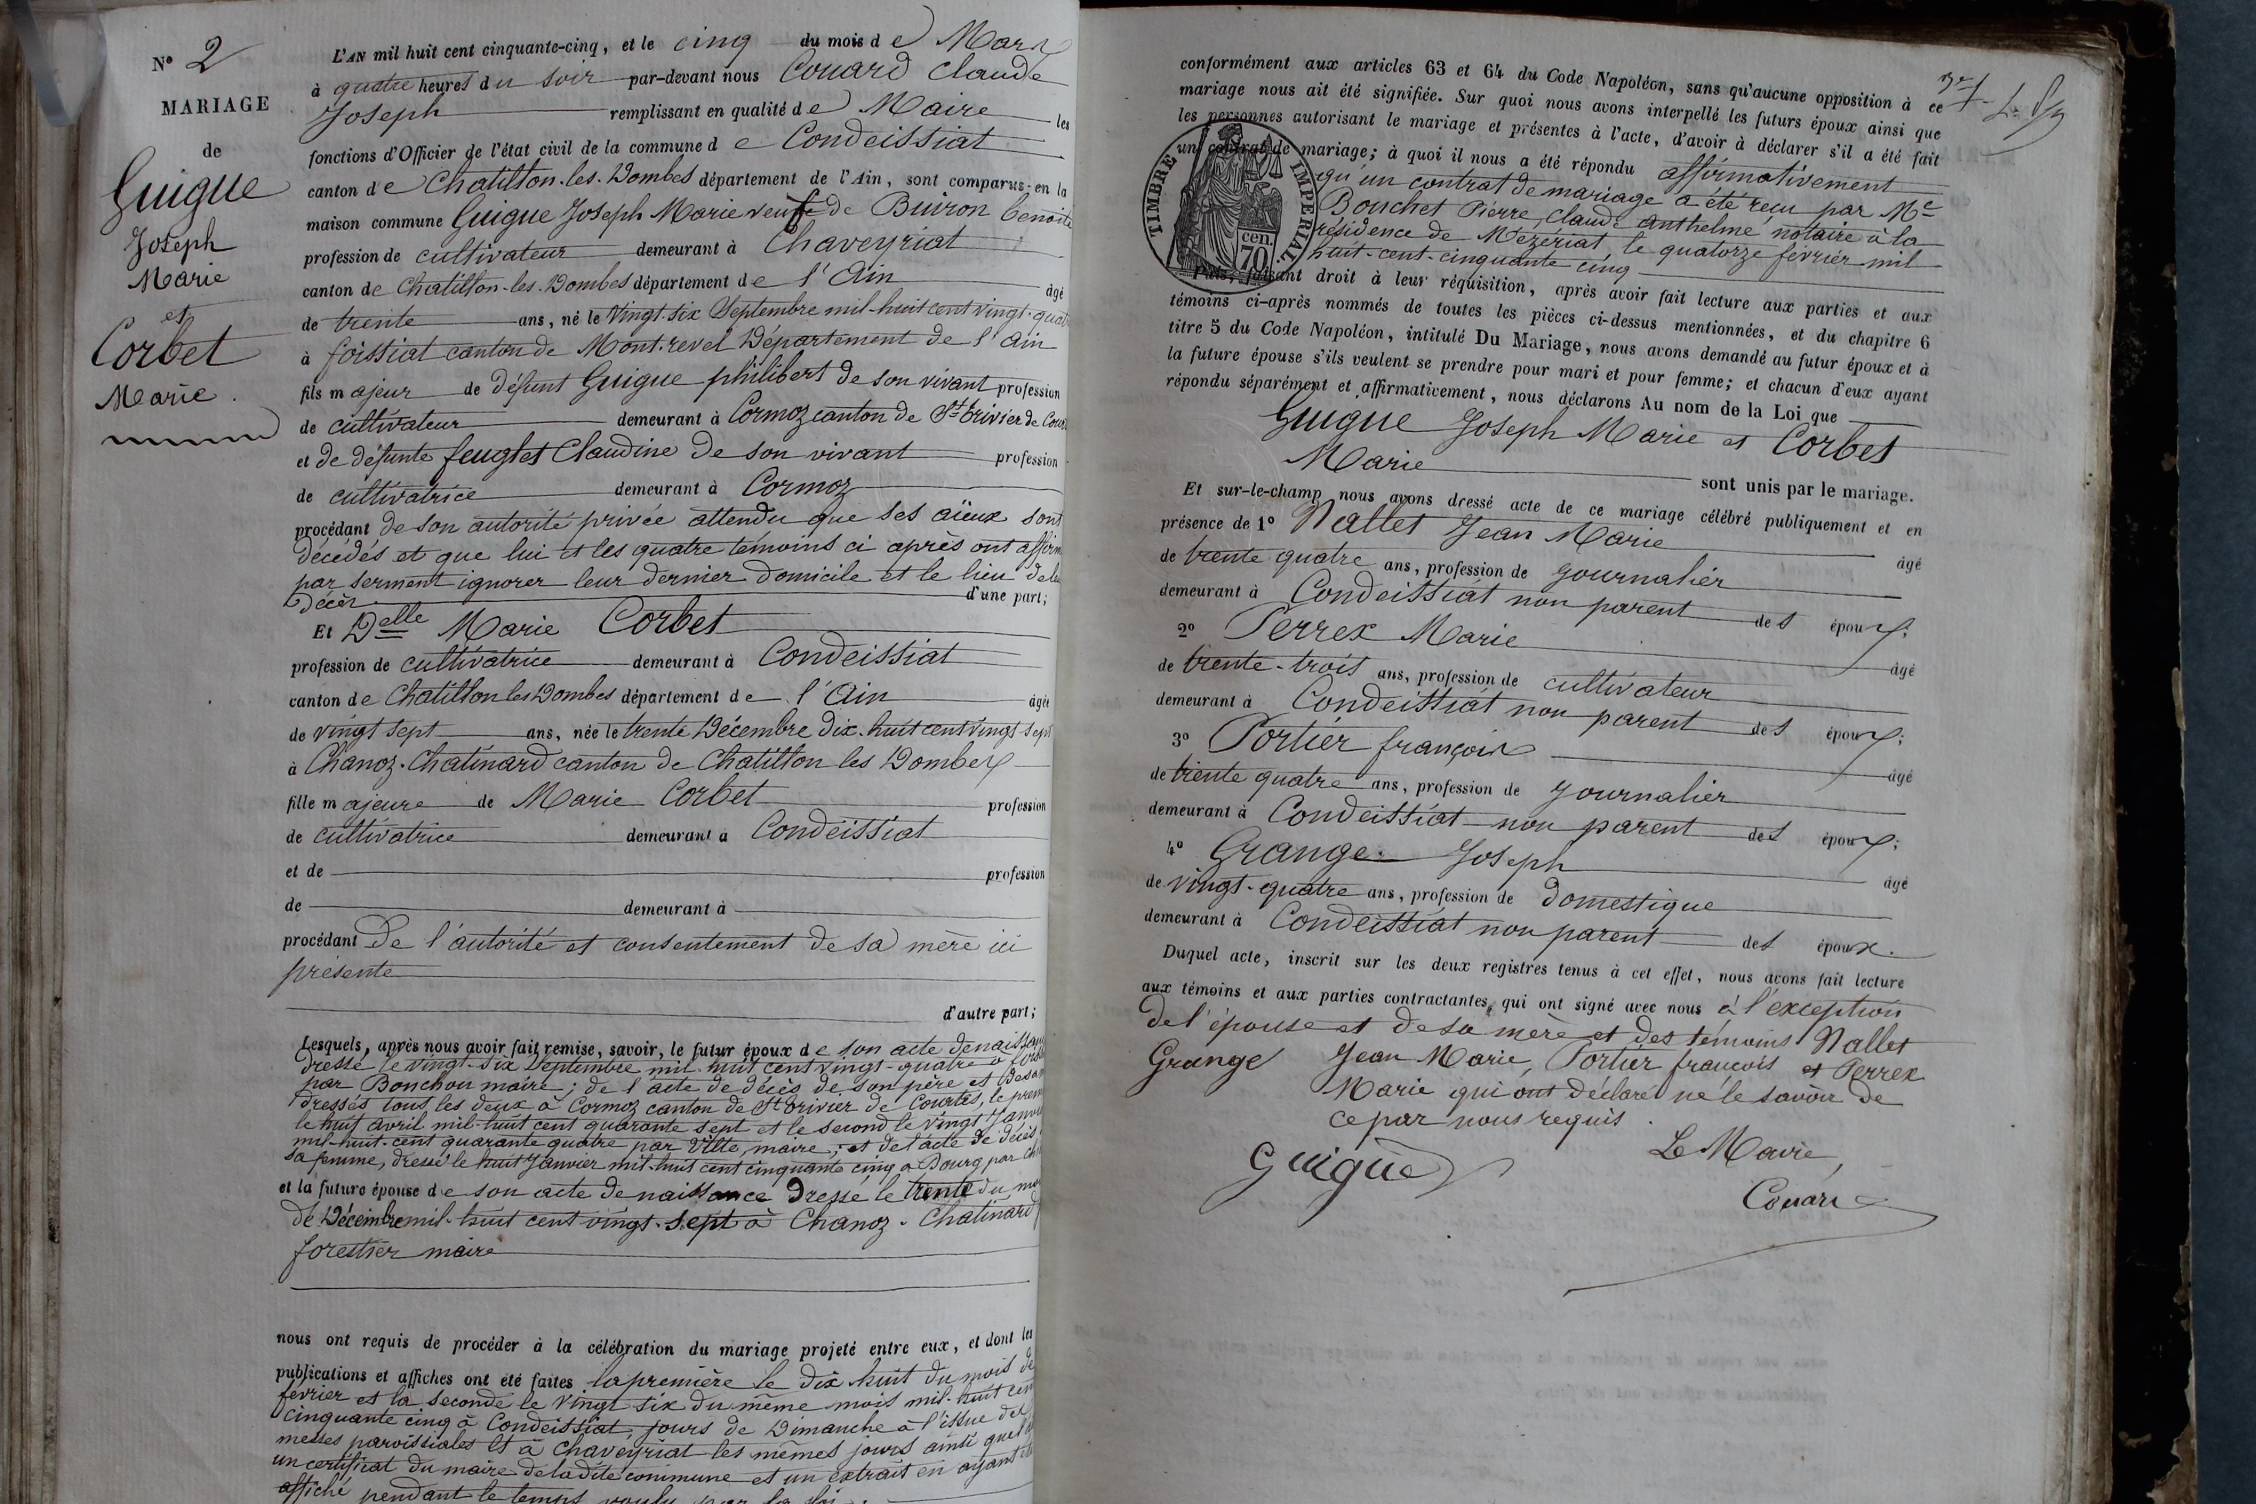 N° 2
MARIAGE
de
Guigue
Joseph
Marie
et
Corbet
Marie.
L'AN mil huit cent cinquante-cinq, et le cinq du mois de Mars
à quatre heures du soir par-devant nous Couard Claude
Joseph remplissant en qualité de Maire les
fonctions d'Officier de l'état civil de la commune de Condeissiat
canton de Chatillon-les-Dombes département de l'Ain, sont comparus en la
maison commune Guigue Joseph Marie veuf de Buiron benoite
profession de cultivateur demeurant à Chaveyriat
canton de Chatillon-les-Dombes département de l'Ain âgé
de trente ans, né le Vingt-six Septembre mil-huit cent vingt-quatre
à foissiat canton de Mont-revel Département de l'Ain
fils majeur de défunt Guigue philibert de son vivant profession
de cultivateur demeurant à Cormoz canton de St trivier de Cour
et de défunte feuglet Claudine de son vivant profession
de cultivatrice demeurant à Cormoz
procédant de son autorité privée attendu que ses aïeux sont
décédés et que lui et les quatre témoins ci après ont affirm
par serment ignorer leur dernier domicile et le lieu de leu
décès d'une part;
Et Delle Marie Corbet
profession de cultivatrice demeurant à Condeissiat
canton de Chatillon les Dombes département de l'Ain âgée
de vingt sept ans, née le trente Décembre dix-huit cent vingt sept
à Chanoz-Chatinard canton de Chatillon les Dombes
fille majeure de Marie Corbet profession
de cultivatrice demeurant à Condeissiat
et de profession
de demeurant à
procédant De l'autorité et consentement de sa mère ici
présente
d'autre part;
Lesquels, après nous avoir fait remise, savoir, le futur époux de son acte de naissan
dressé le vingt-six Septembre mil huit cent vingt-quatre à foiss
par Bouchou maire; de l'acte de décès de son père et de sa
dressés tous les deux à Cormoz canton de St trivier de Courtes, le prem
le huit avril mil-huit cent quarante sept et le second le vingt Janv
mil-huit-cent quarante quatre par maire; et de l'acte de décès
sa femme, dressé le huit Janvier mil-huit cent cinquante cinq à Bourg par
et la future épouse de son acte de naissance dressé le trente du mo
de Décembre mil-huit cent vingt-sept à Chanoz-Chatinard
forestier maire
nous ont requis de procéder à la célébration du mariage projeté entre eux, et dont les
publications et affiches ont été faites la première le dix huit du mois de
février et la seconde le vingt six du même mois mil-huit cen
cinquante cinq à Condeissiat, jours de Dimanche à l'issue des
messes paroissiales et à Chaveyriat les mêmes jours ainsi que l
un certificat du maire de la dite commune et un extrait en ayant été
affiché pendant le temps voulu par la loi.
conformément aux articles 63 et 64 du Code Napoléon, sans qu'aucune opposition à ce
mariage nous ait été signifiée. Sur quoi nous avons interpellé les futurs époux ainsi que
les personnes autorisant le mariage et présentes à l'acte, d'avoir à déclarer s'il a été fait
un contrat de mariage; à quoi il nous a été répondu affirmativement
qu'un contrat de mariage a été reçu par Me
Bouchet Pierre, Claude anthelme notaire à la
résidence de Mézériat le quatorze février mil
huit-cent-cinquante cinq
TIMBRE IMPERIAL.
cen.
70
Puis, faisant droit à leur réquisition, après avoir fait lecture aux parties et aux
témoins ci-après nommés de toutes les pièces ci-dessus mentionnées, et du chapitre 6
titre 5 du Code Napoléon, intitulé Du Mariage, nous avons demandé au futur époux et à
la future épouse s'ils veulent se prendre pour mari et pour femme; et chacun d'eux ayant
répondu séparément et affirmativement, nous déclarons Au nom de la Loi que
Guigue Joseph Marie et Corbet
Marie sont unis par le mariage.
Et sur-le-champ nous avons dressé acte de ce mariage célébré publiquement et en
présence de 1° Nallet Jean Marie âgé
de trente quatre ans, profession de journalier
demeurant à Condeissiat non parent des époux;
2° Perrex Marie âgé
de trente-trois ans, profession de cultivateur
demeurant à Condeissiat non parent des époux;
3° Portier françois âgé
de trente quatre ans, profession de journalier
demeurant à Condeissiat non parent des époux;
4° Grange Joseph âgé
de vingt-quatre ans, profession de domestique
demeurant à Condeissiat non parent des époux.
Duquel acte, inscrit sur les deux registres tenus à cet effet, nous avons fait lecture
aux témoins et aux parties contractantes, qui ont signé avec nous à l'exception
de l'épouse et de sa mère et des témoins Nallet
Jean Marie, Portier françois et Perrex
Marie qui ont déclaré ne le savoir de
ce par nous requis.
Grange
Guigue
Le Maire,
Couard